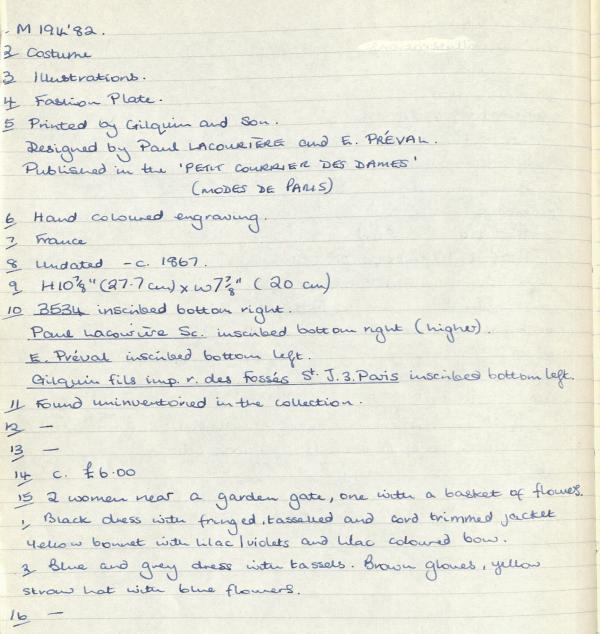 - M 194'82.
2 Costume
3 Illustrations.
4 Fashion Plate.
5 Printed by Gilquin and Son.
Designed by Paul LACOURIÈRE and E. PRÉVAL.
Published in the 'PETIT COURRIER DES DAMES'
(MODES DE PARIS)
6 Hand coloured engraving.
7 France
8 Undated - c. 1867.
9 H10⅞" (27.7 cm) x W7⅞" (20 cm)
10 3534 inscribed bottom right.
Paul Lacourière Sc. inscribed bottom right (higher).
E. Préval inscribed bottom left.
Gilquin fils imp. r. des Fossés St. J. 3. Paris inscribed bottom left.
11 Found uninventoried in the collection.
12 -
13 -
14 c. £6.00
15 2 women near a garden gate, one with a basket of flowers.
1, Black dress with fringed, tasselled and cord trimmed jacket
Yellow bonnet with lilac/violets and lilac coloured bow.
2 Blue and grey dress with tassels. Brown gloves, yellow
straw hat with blue flowers.
16 -